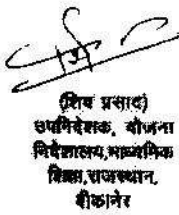 (शिव प्रसाद)
उपनिदेशक, योजना
निदेशालय,माध्यमिक
शिक्षा,राजस्थान,
बीकानेर